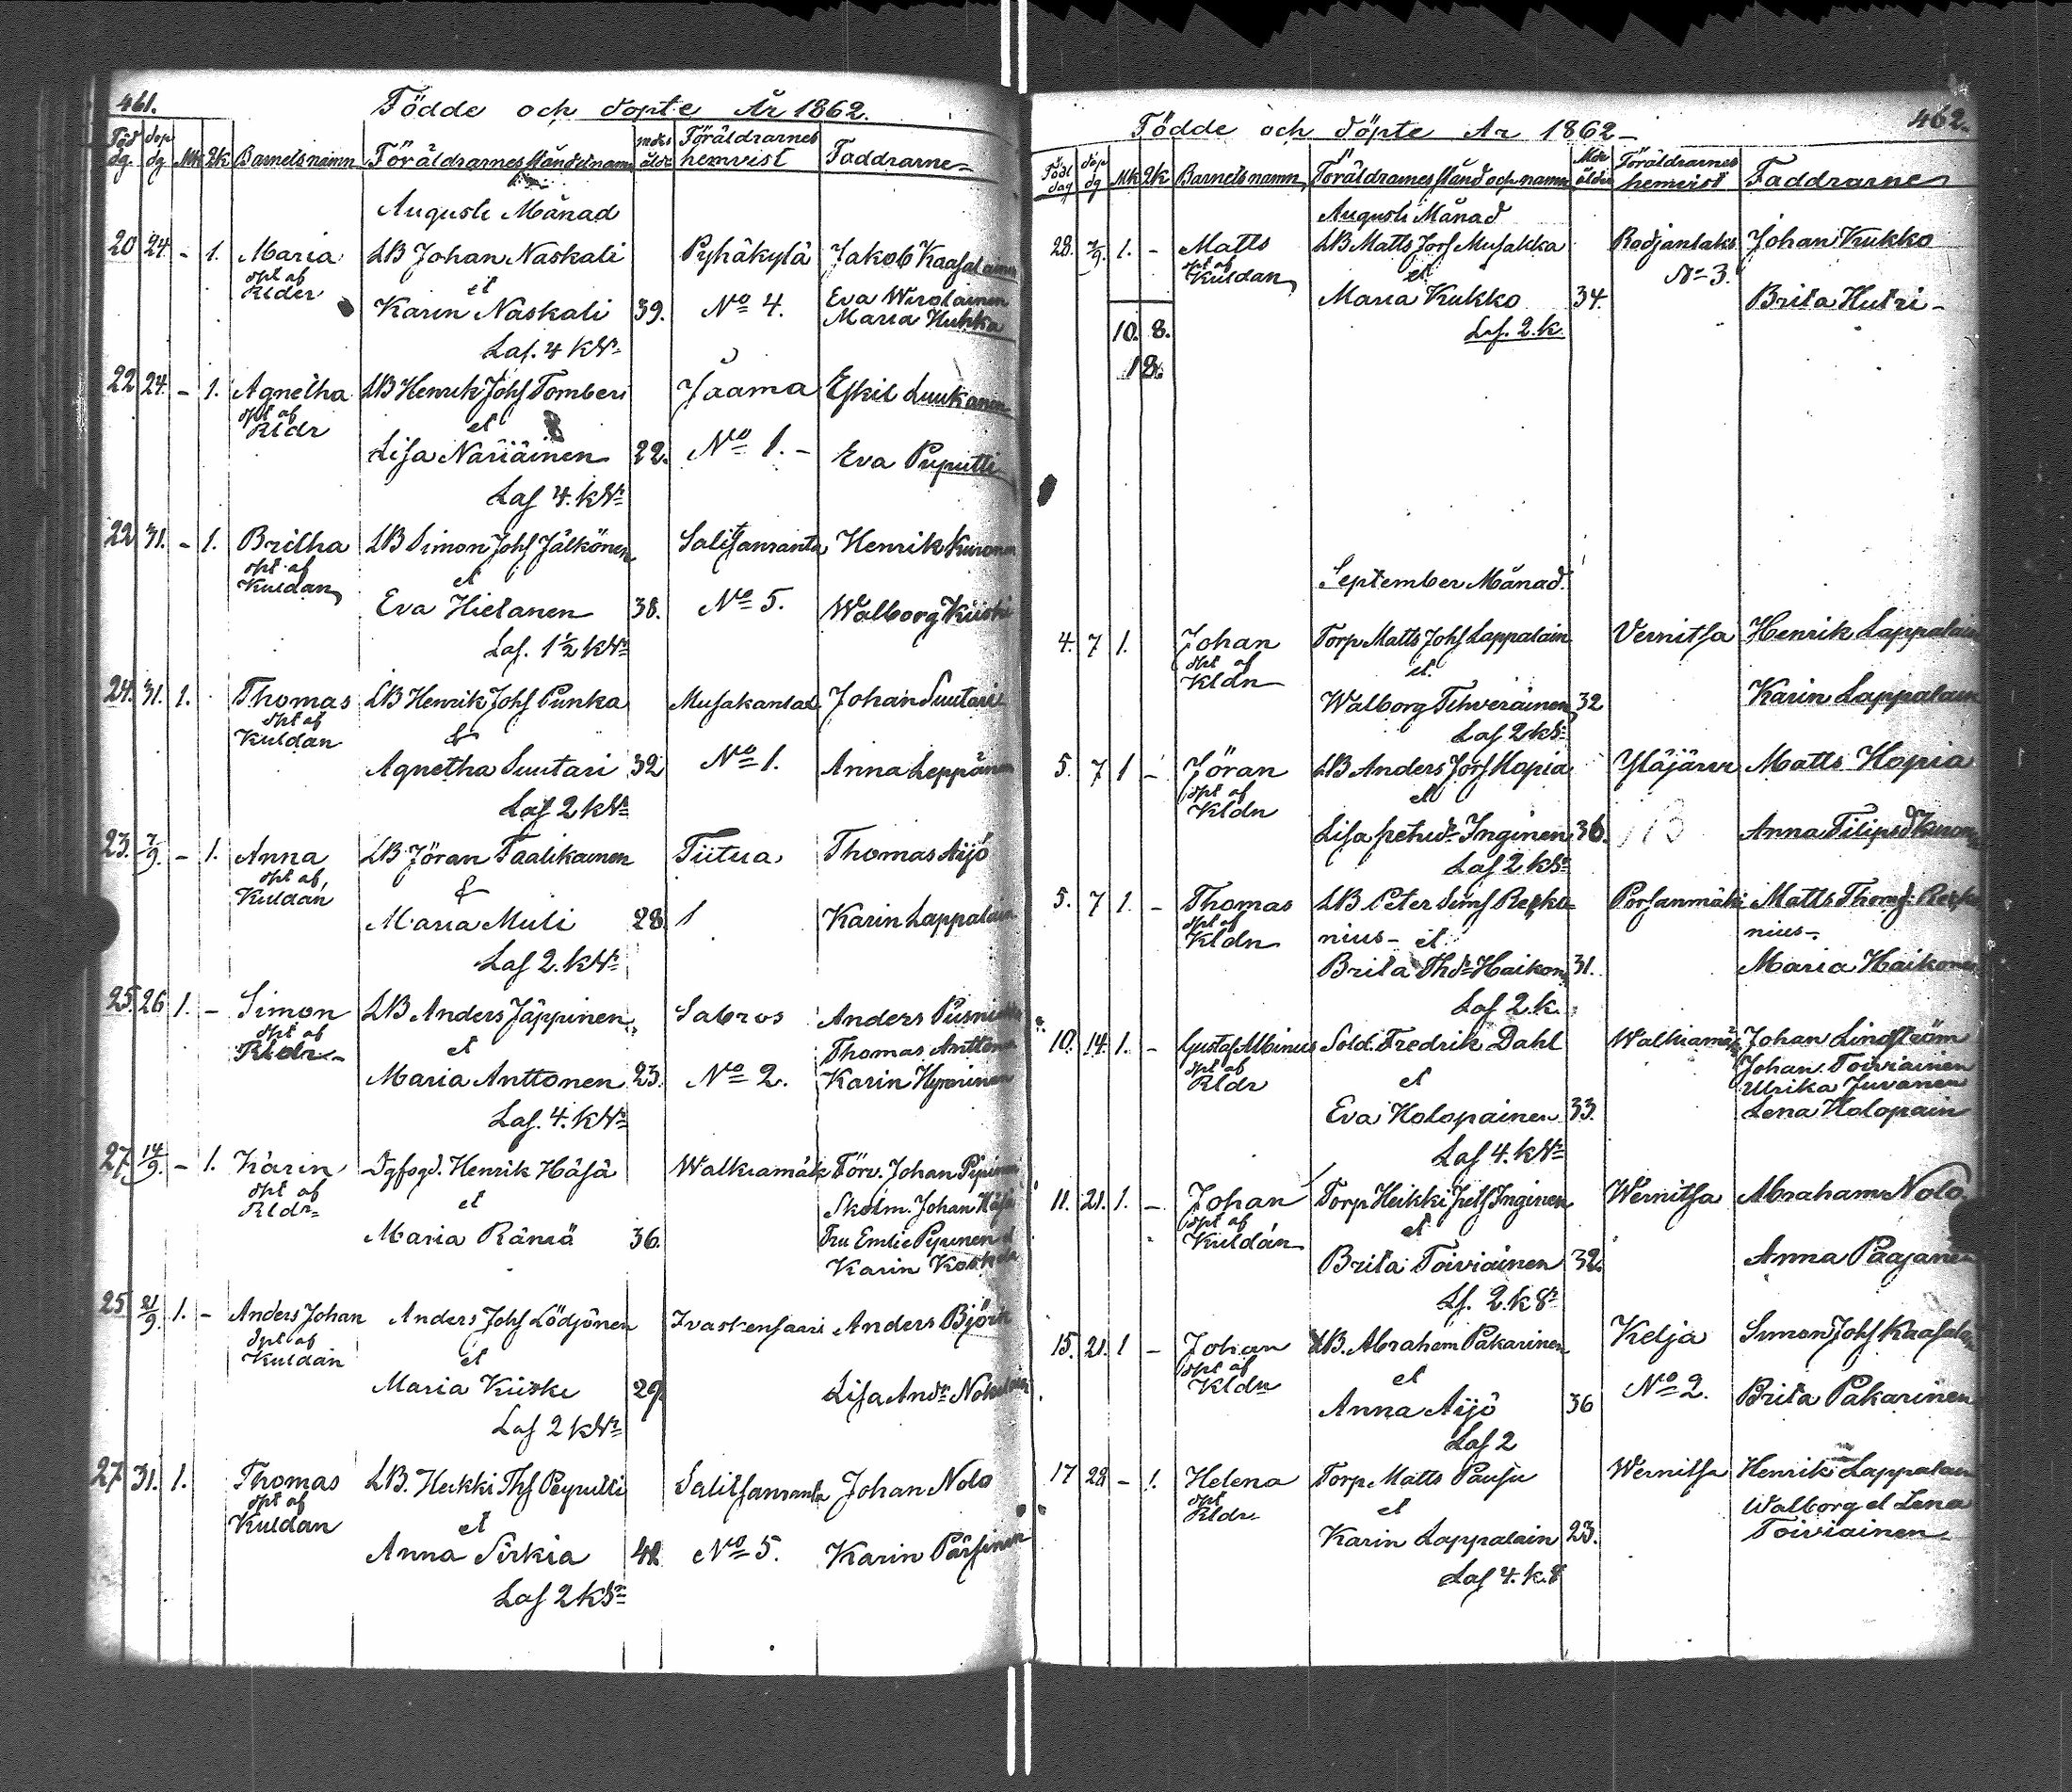 461.
Födde och döpte År 1862.
Född dg. Döp dg Mk Qk Barnets namn Föräldrarnes Stånd et namn Föräldrarnes hemvist Faddrarne
Augusti Månad
20 24 - 1. Maria LB Johan Naskali Pyhäkylä Jakob Kaasalainen
döpt af Rlder et Eva Wirolainen
Karin Naskali 39. No 4. Maria Hukka
Laf. 4 kSr
22 24. - 1. Agnetha LB Henrik Johs Tomberi Jaama Eskil Luukanen
dpt af Rldr et
Lisa Näriäinen 22. No 1. - Eva Puputti
Laf 4. kSr
22 31. - 1. Britha LB Simon Johs Jälkönen Salitsanranta Henrik Kuronen
dpt af Kuldan et
Eva Hietanen 38. No 5. Walborg Kiiski
Laf. 1 1/2 kSr
24. 31. 1. Thomas LB Henrik Johs Punka Musakanlaks Johan Suutari
dpt af Kuldan &
Agnetha Suutari 32 No 1. Anna Leppänen
Laf 2 kSr
23. 7/9. - 1. Anna LB Jöran Taalikainen Tiitua Thomas Äijö
dpt af Kuldan &
Maria Muli 28. 1 Karin Lappalain
Laf 2. kSr
25. 26 1. - Simon LB Anders Jäppinen Sabros Anders
dpt af Rldr et Thomas Anttonen
Maria Anttonen 23. No 2. Karin Hyvärinen
Laf. 4. kSr
27. 14/9. - 1. Karin Henrik Häsä Walkiamäki Förv. Johan
dpt af Rldr et Skolm. Johan Häsä
Maria Rämä 36. Fru Emlie
Karin
25 21/9. 1. - Anders Johan Anders Johs Lödjönen Ivaskensaari Anders Björk
dpt af Kuldan et
Maria Kiiski 29. Lisa Andr
Laf 2 kSr
27 31. 1. Thomas LB. Heikki Ths Peyputti Salitsanranta Johan Nolo
dpt af Kuldan et
Anna Sirkia No 5. Karin Pärsinen
Laf 2 kSr
462.
Födde och döpte År 1862 -
Född dag döp dg Mk Qk Barnets namn Föräldrarnes stånd och namn Mdr ålder Föräldrarnes hemvist Faddrarne
Augusti Månad
28. 7/9. 1. - Matts LB Matts Jörs Musakka Rodjanlaks Johan Kukko
dpt af Kuldan et No 3.
Maria Kukko 34. Brita Hutri -
10. 8. Laf. 2. k.
18.
September Månad.
4. 7 1. Johan Torp Matts Johs Lappalain Vernitsa Henrik Lappalain
dpt af Kldn et
Walborg Tihveräinen 32 Karin Lappalain
Laf 2 kSr
5. 7 1 - Jöran LB Anders Jörs Hopia Yläjärvi Matts Hopia
dpt af Kldn et
Lisa petrdr Inginen 36. 13 Anna Filipsd Kuronen
Laf 2 kSr
5. 7 1. - Thomas LB Peter Sims Repko- Porsanmäki Matts Thoms Repko-
dpt af Kldn nius - et nius -
Brita Thdr Haikon 31. Maria Haikonen
Laf 2. k.
10. 14. 1. - Gustaf Albinus Sold. Fredrik Dahl Walkiamäki Johan Lindström
dpt af Rldr et Johan Toiviainen
Ulrika Juvonen
Eva Holopainen 33. Lena Holopain
Laf 4. kSr
11. 21. 1. - Johan Torp Heikki pets Inginen Wernitsa Abraham Nolo
dpt af Kuldan et
Brita Toiviainen 32. Anna Paajanen
Lf. 2. k Sr
15. 21. 1 - Johan LB. Abrahem Pakarinen Kelja Simon Johs Kaasalain
dpt af Kldn et
Anna Äijö 36 No 2. Brita Pakarinen
Laf 2
17 28 - 1. Helena Torp. Matts Pausu Wernitsa Henrik Lappalain
dpt Rldr et Walborg et Lena
Karin Lappalain 23. Toiviainen
Laf 4. k. S